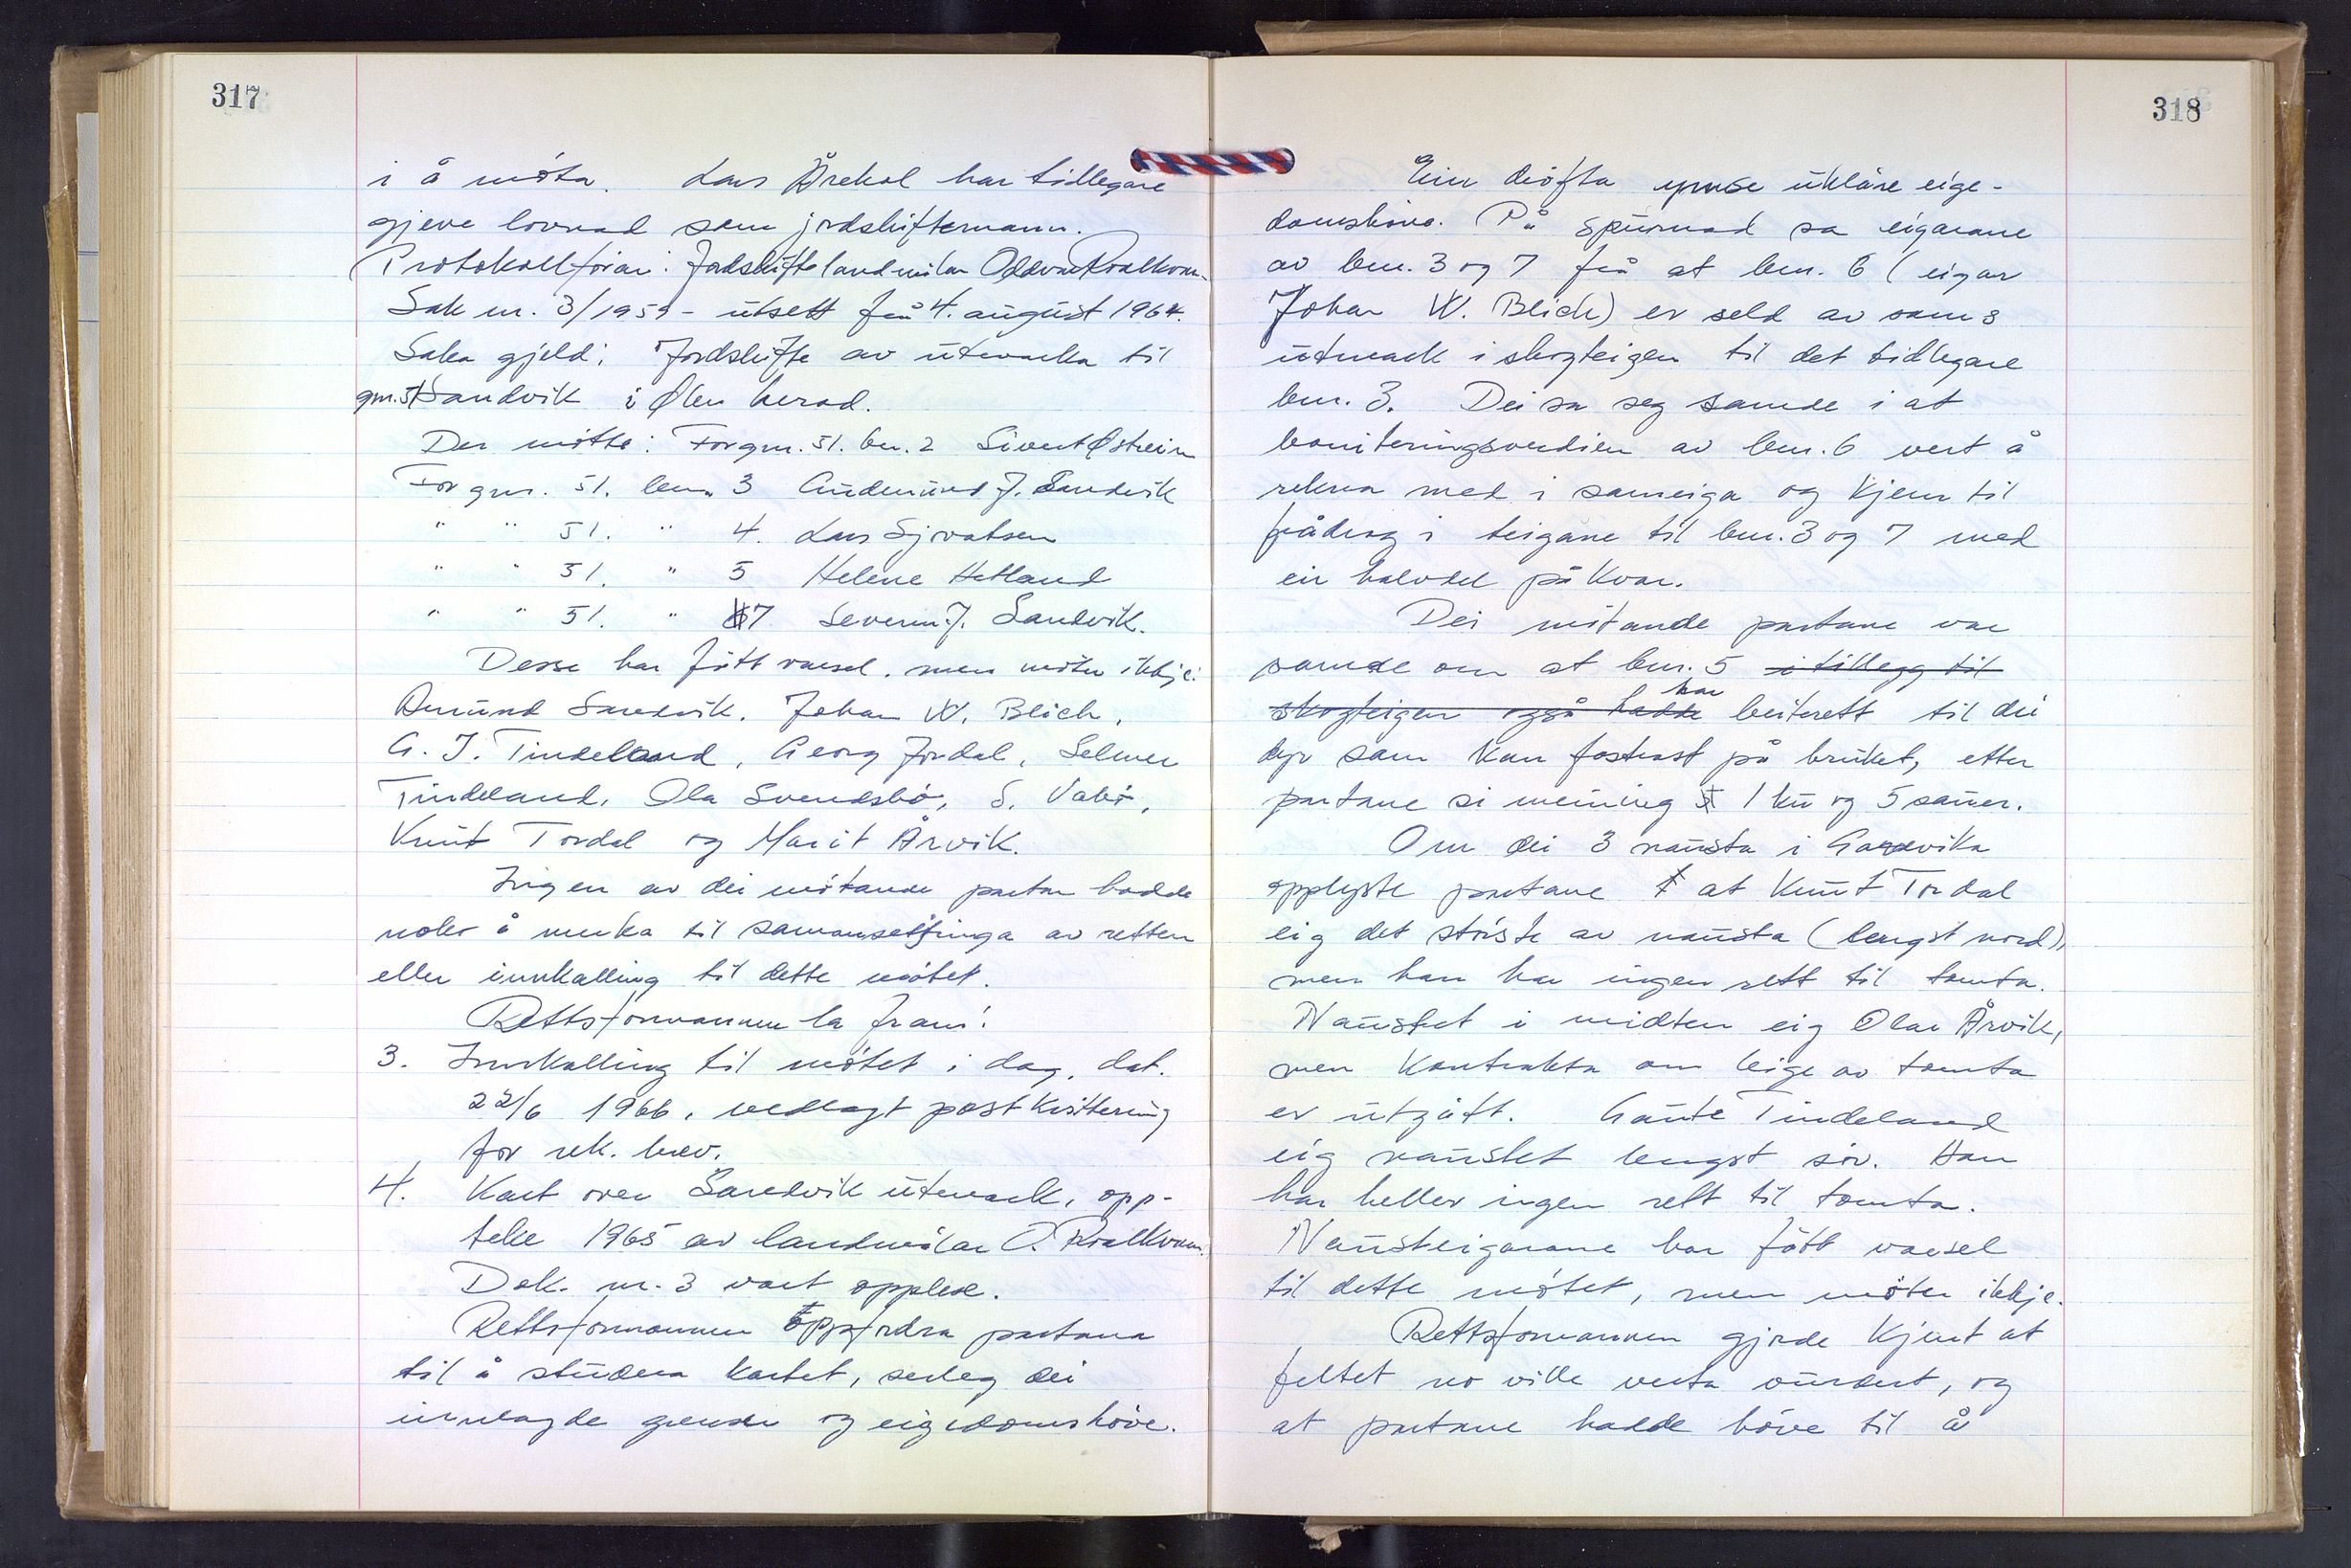 317
i å møta. Lars Årekol har tidlegare
gjeve lovnad som jordskiftemann.
Protokollførar: Jordskiftelandmålar Oddvar Roalkvam.
Sak nr. 3/1959 - utsett frå 4. august 1964.
Saka gjeld: Jordskifte av utmarka til
gnr. 51 Sandvik i Ølen herad.
Der møtte: For gnr. 51. bnr. 2 Sivert Østrein
For gnr. 51. bnr. 3 Audmund J. Sandvik
" " 51. " 4. Lars Sjovatsen
" " 51. " 5 Helene Hetland
" " 51. " 7 Severin J. Sandvik.
Desse har fått varsel, men møter ikkje:
Amund Sandvik, Johan W. Blich,
G. J. Tindeland, Georg Jordal, Selmer
Tindeland, Ola Svendsbø, S. Vabø,
Knut Tordal og Marit Årvik.
Ingen av dei møtande partar hadde
noko å merka til samansetjinga av retten
eller innkalling til dette møtet.
Rettsformannen la fram:
3. Innkalling til møtet i dag, dat.
22/6 1966, vedlagt postkvittering
for rek. brev.
4. Kart over Sandvik utmark, opp-
teke 1965 av landmålar O. Roalkvam.
Dok. nr. 3 vart opplese.
Rettsformannen oppfordra partane
til å studera kartet, serleg dei
innlagde grenser og eigedomshøve.
318
Ein drøfta ymse uklåre eige-
domshøve. På spurnad sa eigarane
av bnr. 3 og 7 frå at bnr. 6 (eigar
Johan W. Blich) er seld av sams
utmark i skogteigen til det tidlegare
bnr. 3. Dei sa seg samde i at
boniteringsverdien av bnr. 6 vert å
rekna med i sameiga og kjem til
frådrag i teigane til bnr. 3 og 7 med
ein halvdel på kvar.
Dei møtande partane var
samde om at bnr. 5 i tillegg til
skogteigen også hadde har beiterett til dei
dyr som kan fostrast på bruket, etter
partane si meining 1 ku og 5 sauer.
Om dei 3 nausta i Gardvika
opplyste partane at Knut Tordal
eig det største av nausta (lengst nord),
men han har ingen rett til tomta.
Naustet i midten eig Olav Årvik,
men kontrakta om leige av tomta
er utgått. Gaute Tindeland
eig naustet lengst sør. Han
har heller ingen rett til tomta.
Nausteigarane har fått varsel
til dette møtet, men møter ikkje.
Rettsformannen gjorde kjent at
feltet no ville verta vurdert, og
at partane hadde høve til å